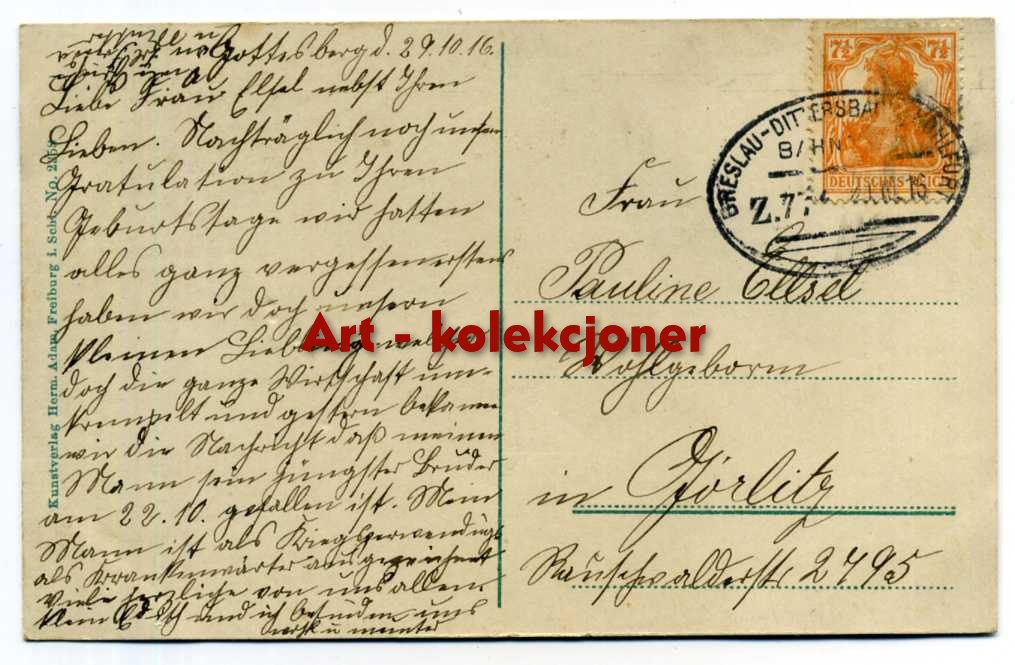 Gottesberg d. 29.10.16.
Liebe Frau Elsel nebst Ihren
Lieben. Nachträglich noch unsere
Gratulation zu Ihren
Geburtstage wir hatten
alles ganz vergessen erstens
haben wir doch unsern
kleinen Liebling welche
doch die ganze Wirtschaft um-
krempelt und gestern bekamen
wir die Nachricht daß meinen
Mann sein Jüngster Bruder
am 22.10. gefallen ist. Mein
Mann ist als
als Krankenwärter
Viele herzliche von uns allen.
und ich befinden uns
wohl u munter
Kunstverlag Herm. Adam, Freiburg i. Schl. No.
7½ 7½
DEUTSCHES REICH
BRESLAU-DITTERSBACH
BAHN
Z.77
Frau
Pauline Ellsel
Wohlgeborn
in Görlitz
Rauschwalderstr 2795
Art - kolekcjoner